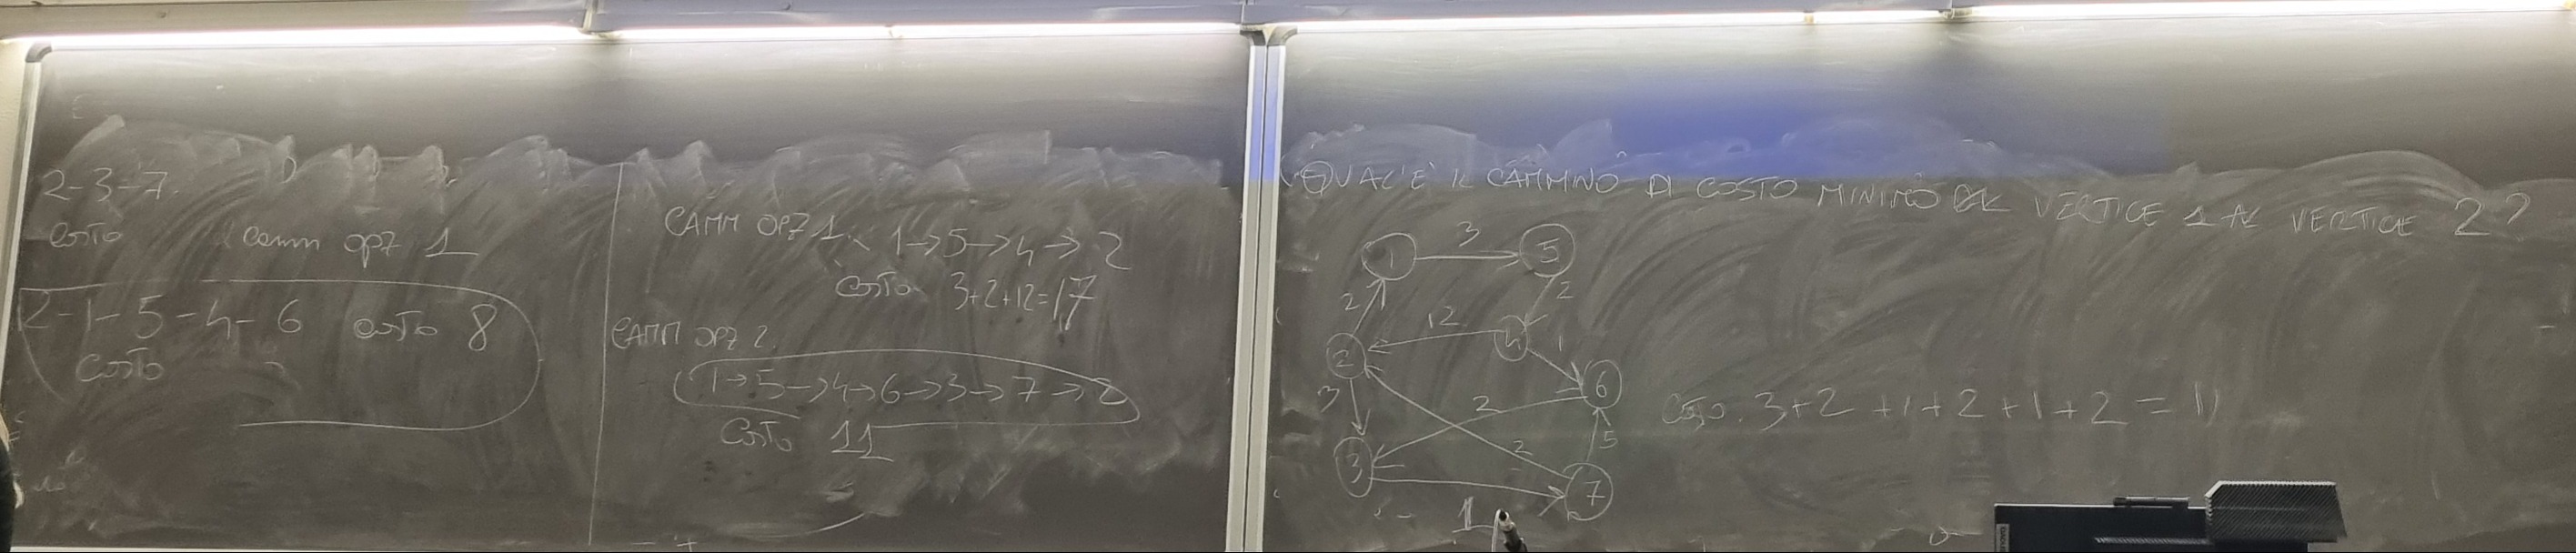 2-3-7.
costo
camm opz 1
2-1-5-4-6 costo 8
costo
CAMM OPZ 1. 1→5→4→2
costo 3+2+12=17
CAMM OPZ 2.
1→5→4→6→3→7→2
COSTO 11
QUAL'È IL CAMMINO DI COSTO MINIMO DAL VERTICE 1 AL VERTICE 2?
1 3 5
2 2
12 4 1
2 6
3 2
costo. 3+2+1+2+1+2=11
2 5
3 7
1